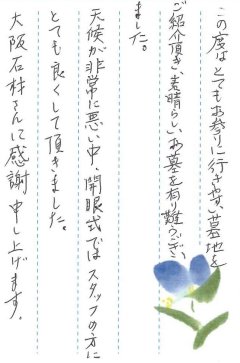 この度はとてもお参りに行きやすい墓地を
ご紹介頂き、素晴らしいお墓を有り難うござい
ました。
天候が非常に悪い中、開眼式ではスタッフの方に
とても良くして頂きました。
大阪石材さんに感謝申し上げます。